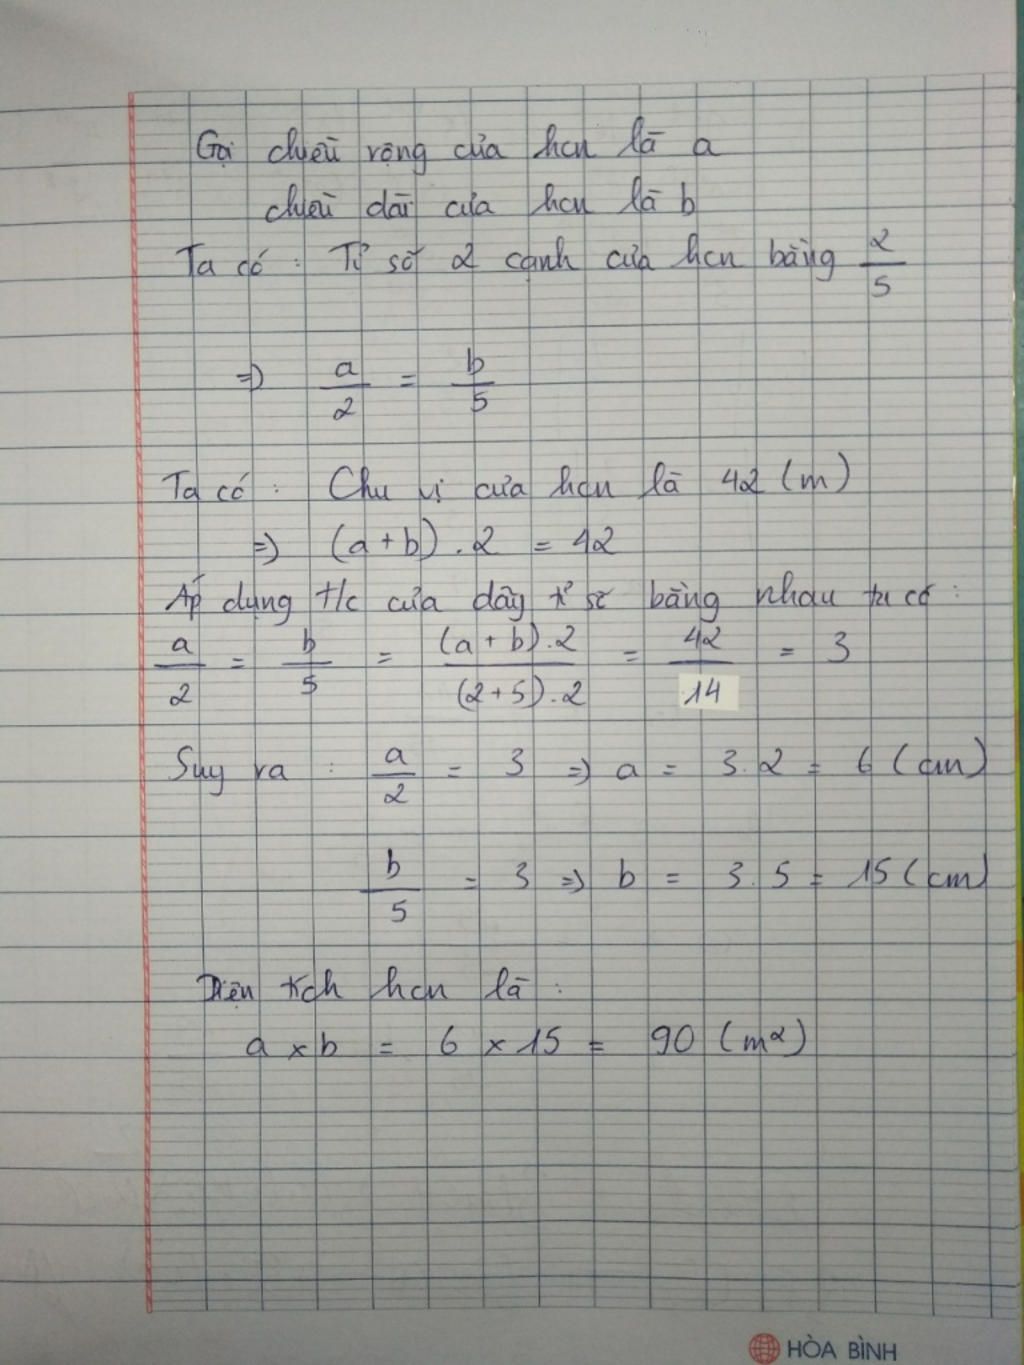 Gọi chiều rộng của hcn là a
chiều dài của hcn là b
Ta có : Tỉ số 2 cạnh của hcn bằng 2/5
=> a/2 = b/5
Ta có : Chu vi của hcn là 42 (m)
=> (a + b) . 2 = 42
Áp dụng t/c của dãy tỉ số bằng nhau ta có :
a/2 = b/5 = (a + b) . 2/(2 + 5) . 2 = 42/14 = 3
Suy ra : a/2 = 3 => a = 3.2 = 6 (cm)
b/5 = 3 => b = 3.5 = 15 (cm)
Diện tích hcn là :
a x b = 6 x 15 = 90 (m2)
HÒA BÌNH